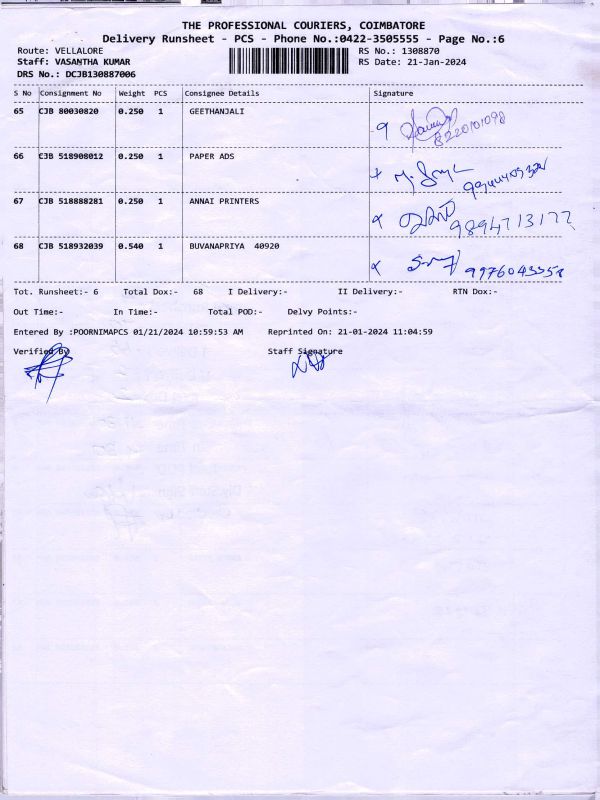 THE PROFESSIONAL COURIERS, COIMBATORE
Delivery Runsheet - PCS - Phone No.:0422-3505555 - Page No.:6
Route: VELLALORE RS No.: 1308870
Staff: VASANTHA KUMAR RS Date: 21-Jan-2024
DRS No.: DCJB130887006
S No Consignment No Weight PCS Consignee Details Signature
65 CJB 80030820 0.250 1 GEETHANJALI
8220101098
66 CJB 518908012 0.250 1 PAPER ADS
67 CJB 518888281 0.250 1 ANNAI PRINTERS
9894713177
68 CJB 518932039 0.540 1 BUVANAPRIYA 40920
Tot. Runsheet:- 6 Total Dox:- 68 I Delivery:- II Delivery:- RTN Dox:-
Out Time:- In Time:- Total POD:- Delvy Points:-
Entered By :POORNIMAPCS 01/21/2024 10:59:53 AM Reprinted On: 21-01-2024 11:04:59
Verified By Staff Signature